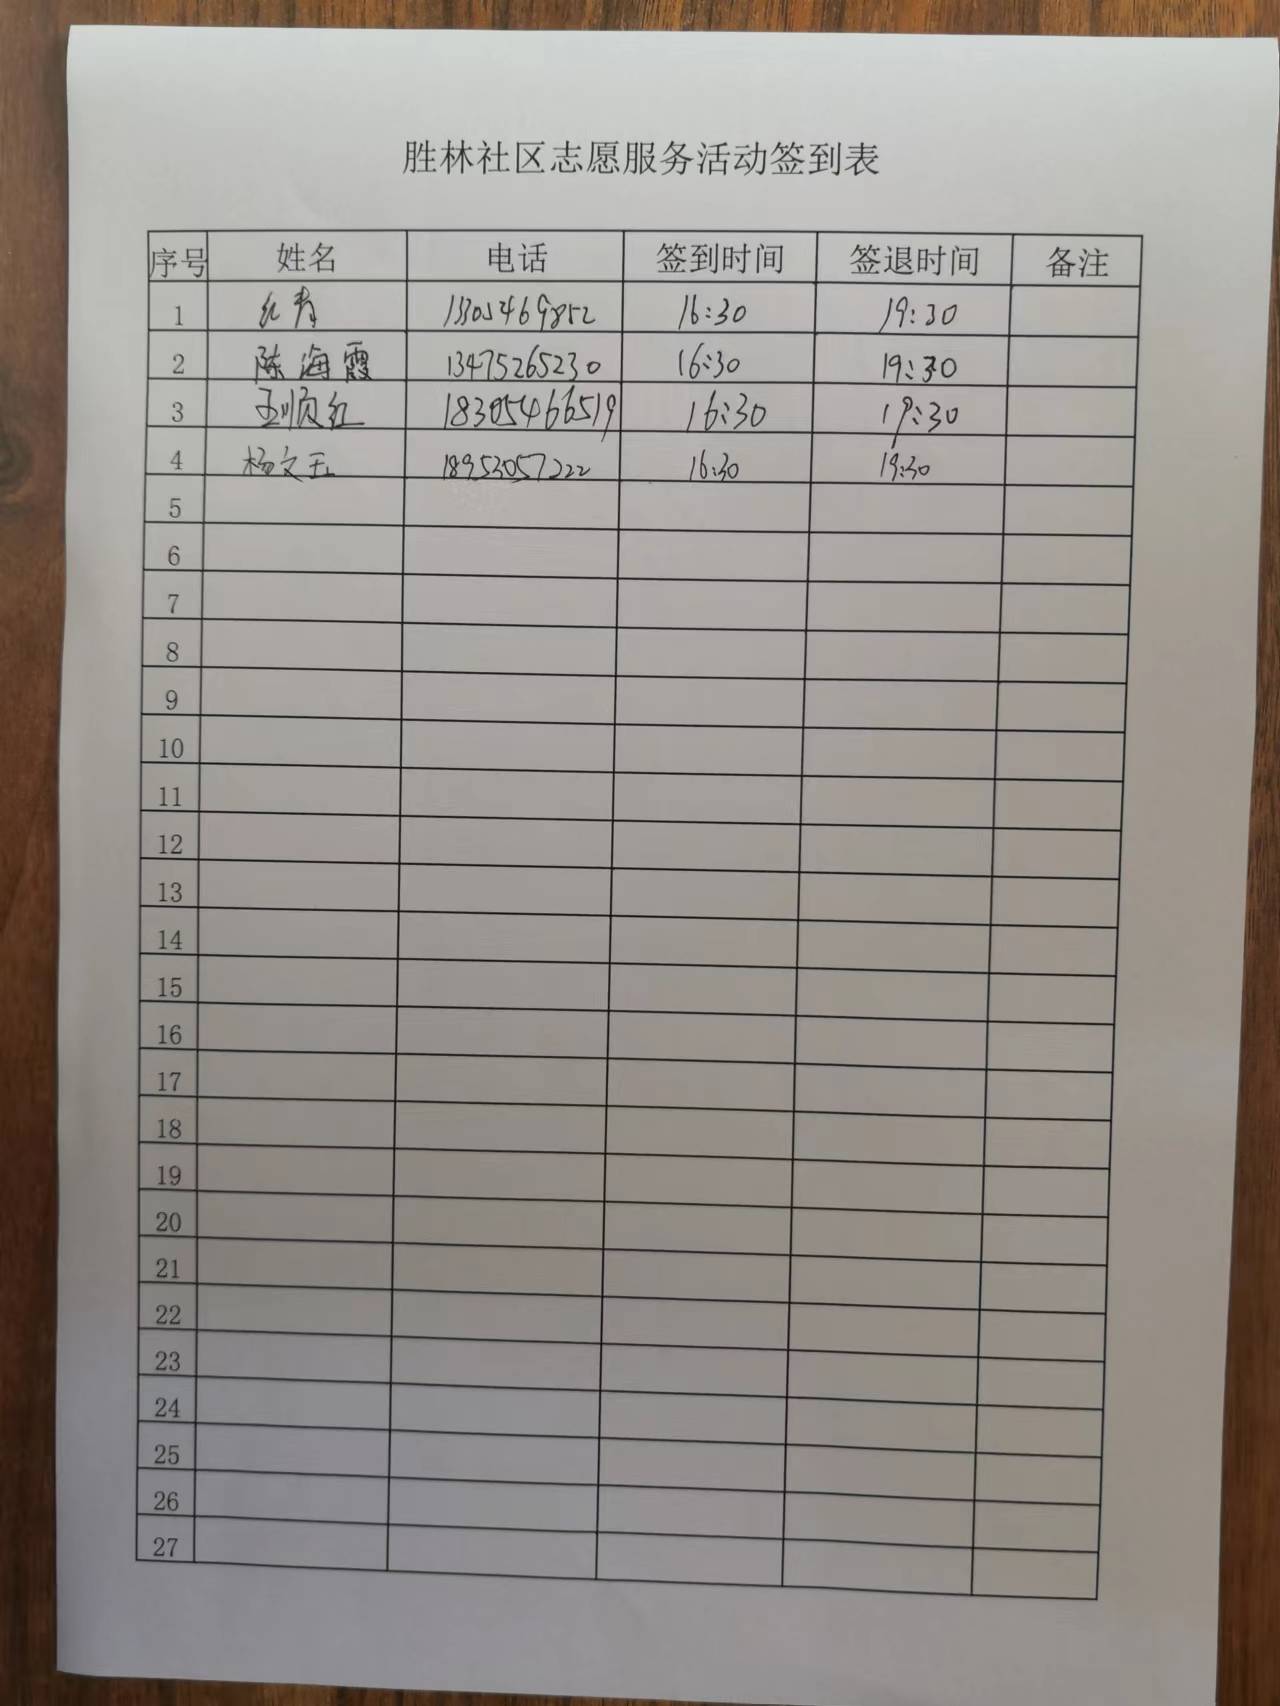 胜林社区志愿服务活动签到表
序号 姓名 电话 签到时间 签退时间 备注
1 红青 13305469852 16:30 19:30
2 陈海霞 13475265230 16:30 19:30
3 王顺红 18305466519 16:30 19:30
4 杨文玉 18953057222 16:30 19:30
5
6
7
8
9
10
11
12
13
14
15
16
17
18
19
20
21
22
23
24
25
26
27